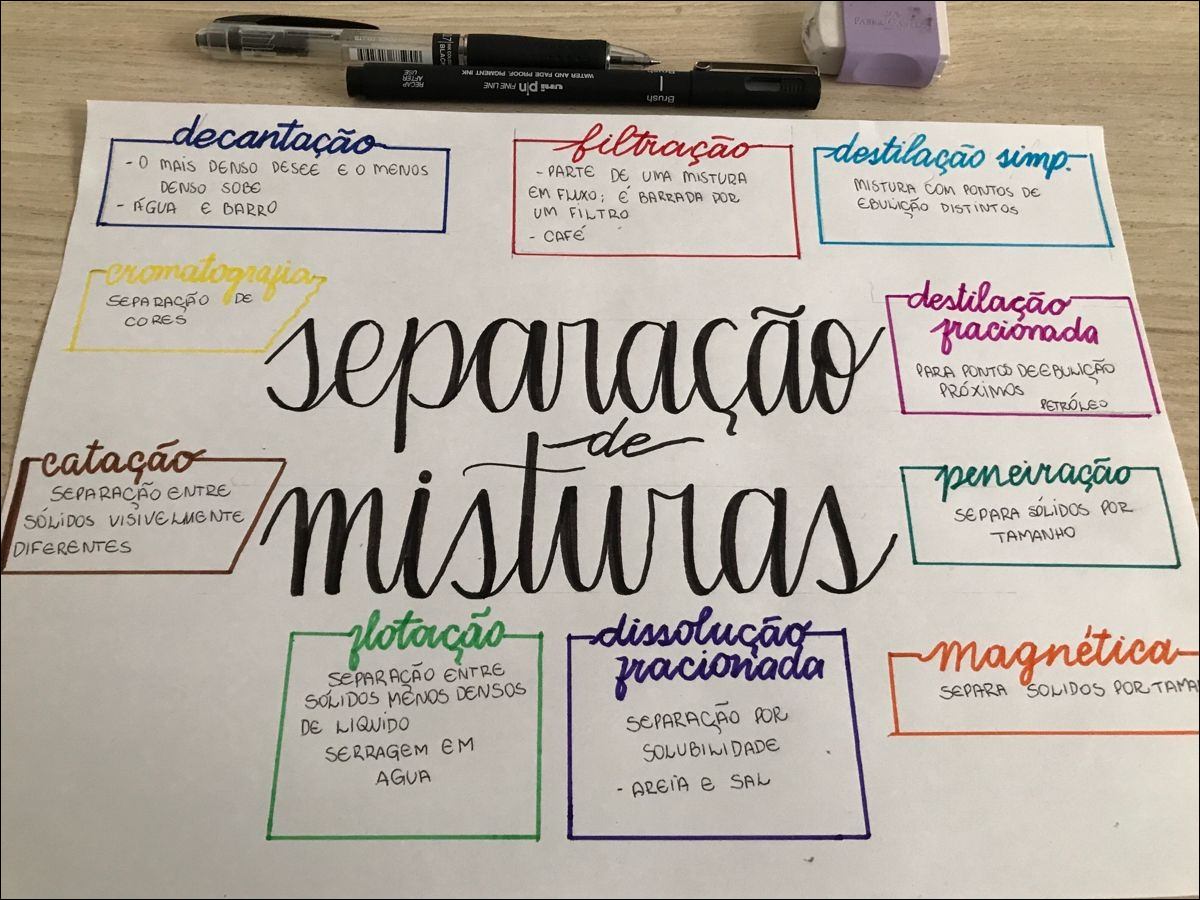 FABER-CASTELL
BLACK
WATER AND FADE PROOF, PIGMENT INK
uni pin FINE LINE
RECAP AFTER USE
Brush
decantação
- O MAIS DENSO DESCE E O MENOS
DENSO SOBE
- ÁGUA E BARRO
filtração
- PARTE DE UMA MISTURA
EM FLUXO; É BARRADA POR
UM FILTRO
- CAFÉ
destilação simp.
MISTURA COM PONTOS DE
EBULIÇÃO DISTINTOS
cromatografia
SEPARAÇÃO DE
CORES
destilação
fracionada
PARA PONTOS DE EBULIÇÃO
PRÓXIMOS
PETRÓLEO
separação
de
misturas
catação
SEPARAÇÃO ENTRE
SÓLIDOS VISIVELMENTE
DIFERENTES
peneiração
SEPARA SÓLIDOS POR
TAMANHO
flotação
SEPARAÇÃO ENTRE
SÓLIDOS MENOS DENSOS
DE LIQUIDO
SERRAGEM EM
AGUA
dissolução
fracionada
SEPARAÇÃO POR
SOLUBILIDADE
- AREIA E SAL
magnética
SEPARA SOLIDOS POR TAMA